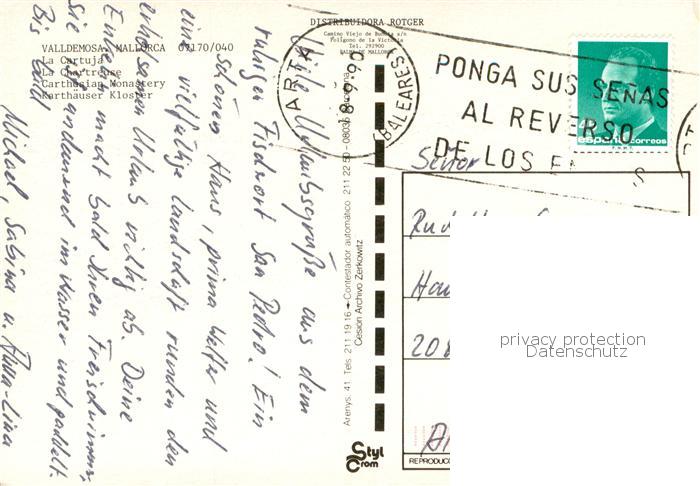 DISTRIBUIDORA ROTGER
Camino Viejo de Buñola s/n
Polígono de la Victoria
Tel. 292900
PALMA DE MALLORCA
VALLDEMOSA, MALLORCA 07170/040
La Cartuja
La Chartreuse
Carthusian Monastery
Karthauser Kloster
ARTA
18-9-90
(BALEARES)
PONGA SUS SEÑAS
AL REVERSO
DE LOS E
españa correos
Liebe Urlaubsgrüße aus dem
ruhigen Fischort San Pedro! Ein
schönes Haus, prima Wetter und
eine vielfältige Landschaft runden den
erholsamen Urlaub richtig ab. Deine
Enkelin macht bald ihren Freischwimmer,
Sie ist andauernd im Wasser und paddelt.
Bis bald
Michael, Sabina u. Anna-Lina
Arenys, 41. Tels. 211 19 16 - Contestador automático 211 22 50 - 08035 Barcelona
Cesión Archivo Zerkowitz
Styl
Crom
Señor
Rud
Hau
208
REPRODUC
privacy protection
Datenschutz